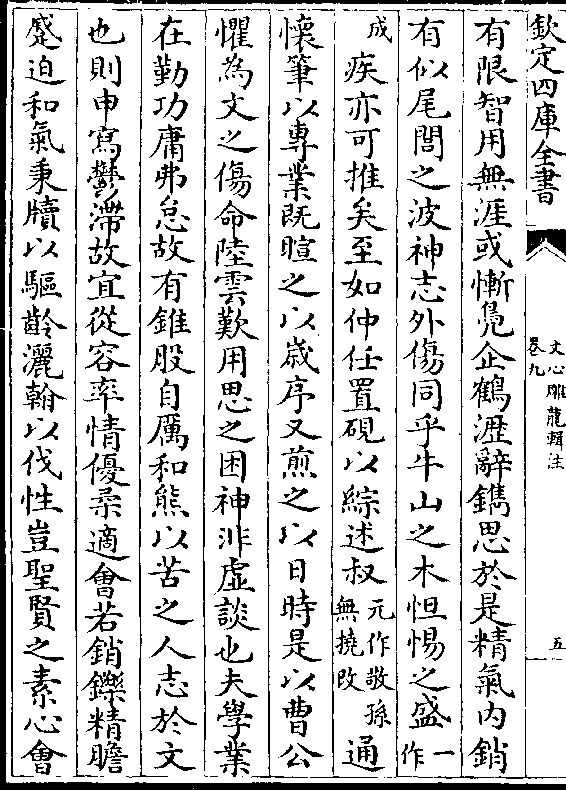 欽定四庫全書
文心雕龍輯注
卷九
五
有限智用無涯或慚鳧企鶴瀝辭鐫思於是精氣内銷
有似尾閭之波神志外傷同乎牛山之木怛惕之盛一作
成疾亦可推矣至如仲任置硯以綜述叔元作敬孫無撓改通
懷筆以專業既暄之以歲序又煎之以日時是以曹公
懼為文之傷命陸雲歎用思之困神非虛談也夫學業
在勤功庸弗怠故有錐股自厲和熊以苦之人志於文
也則申寫鬱滯故宜從容率情優柔適會若銷鑠精膽
蹙迫和氣秉牘以驅齡灑翰以伐性豈聖賢之素心會